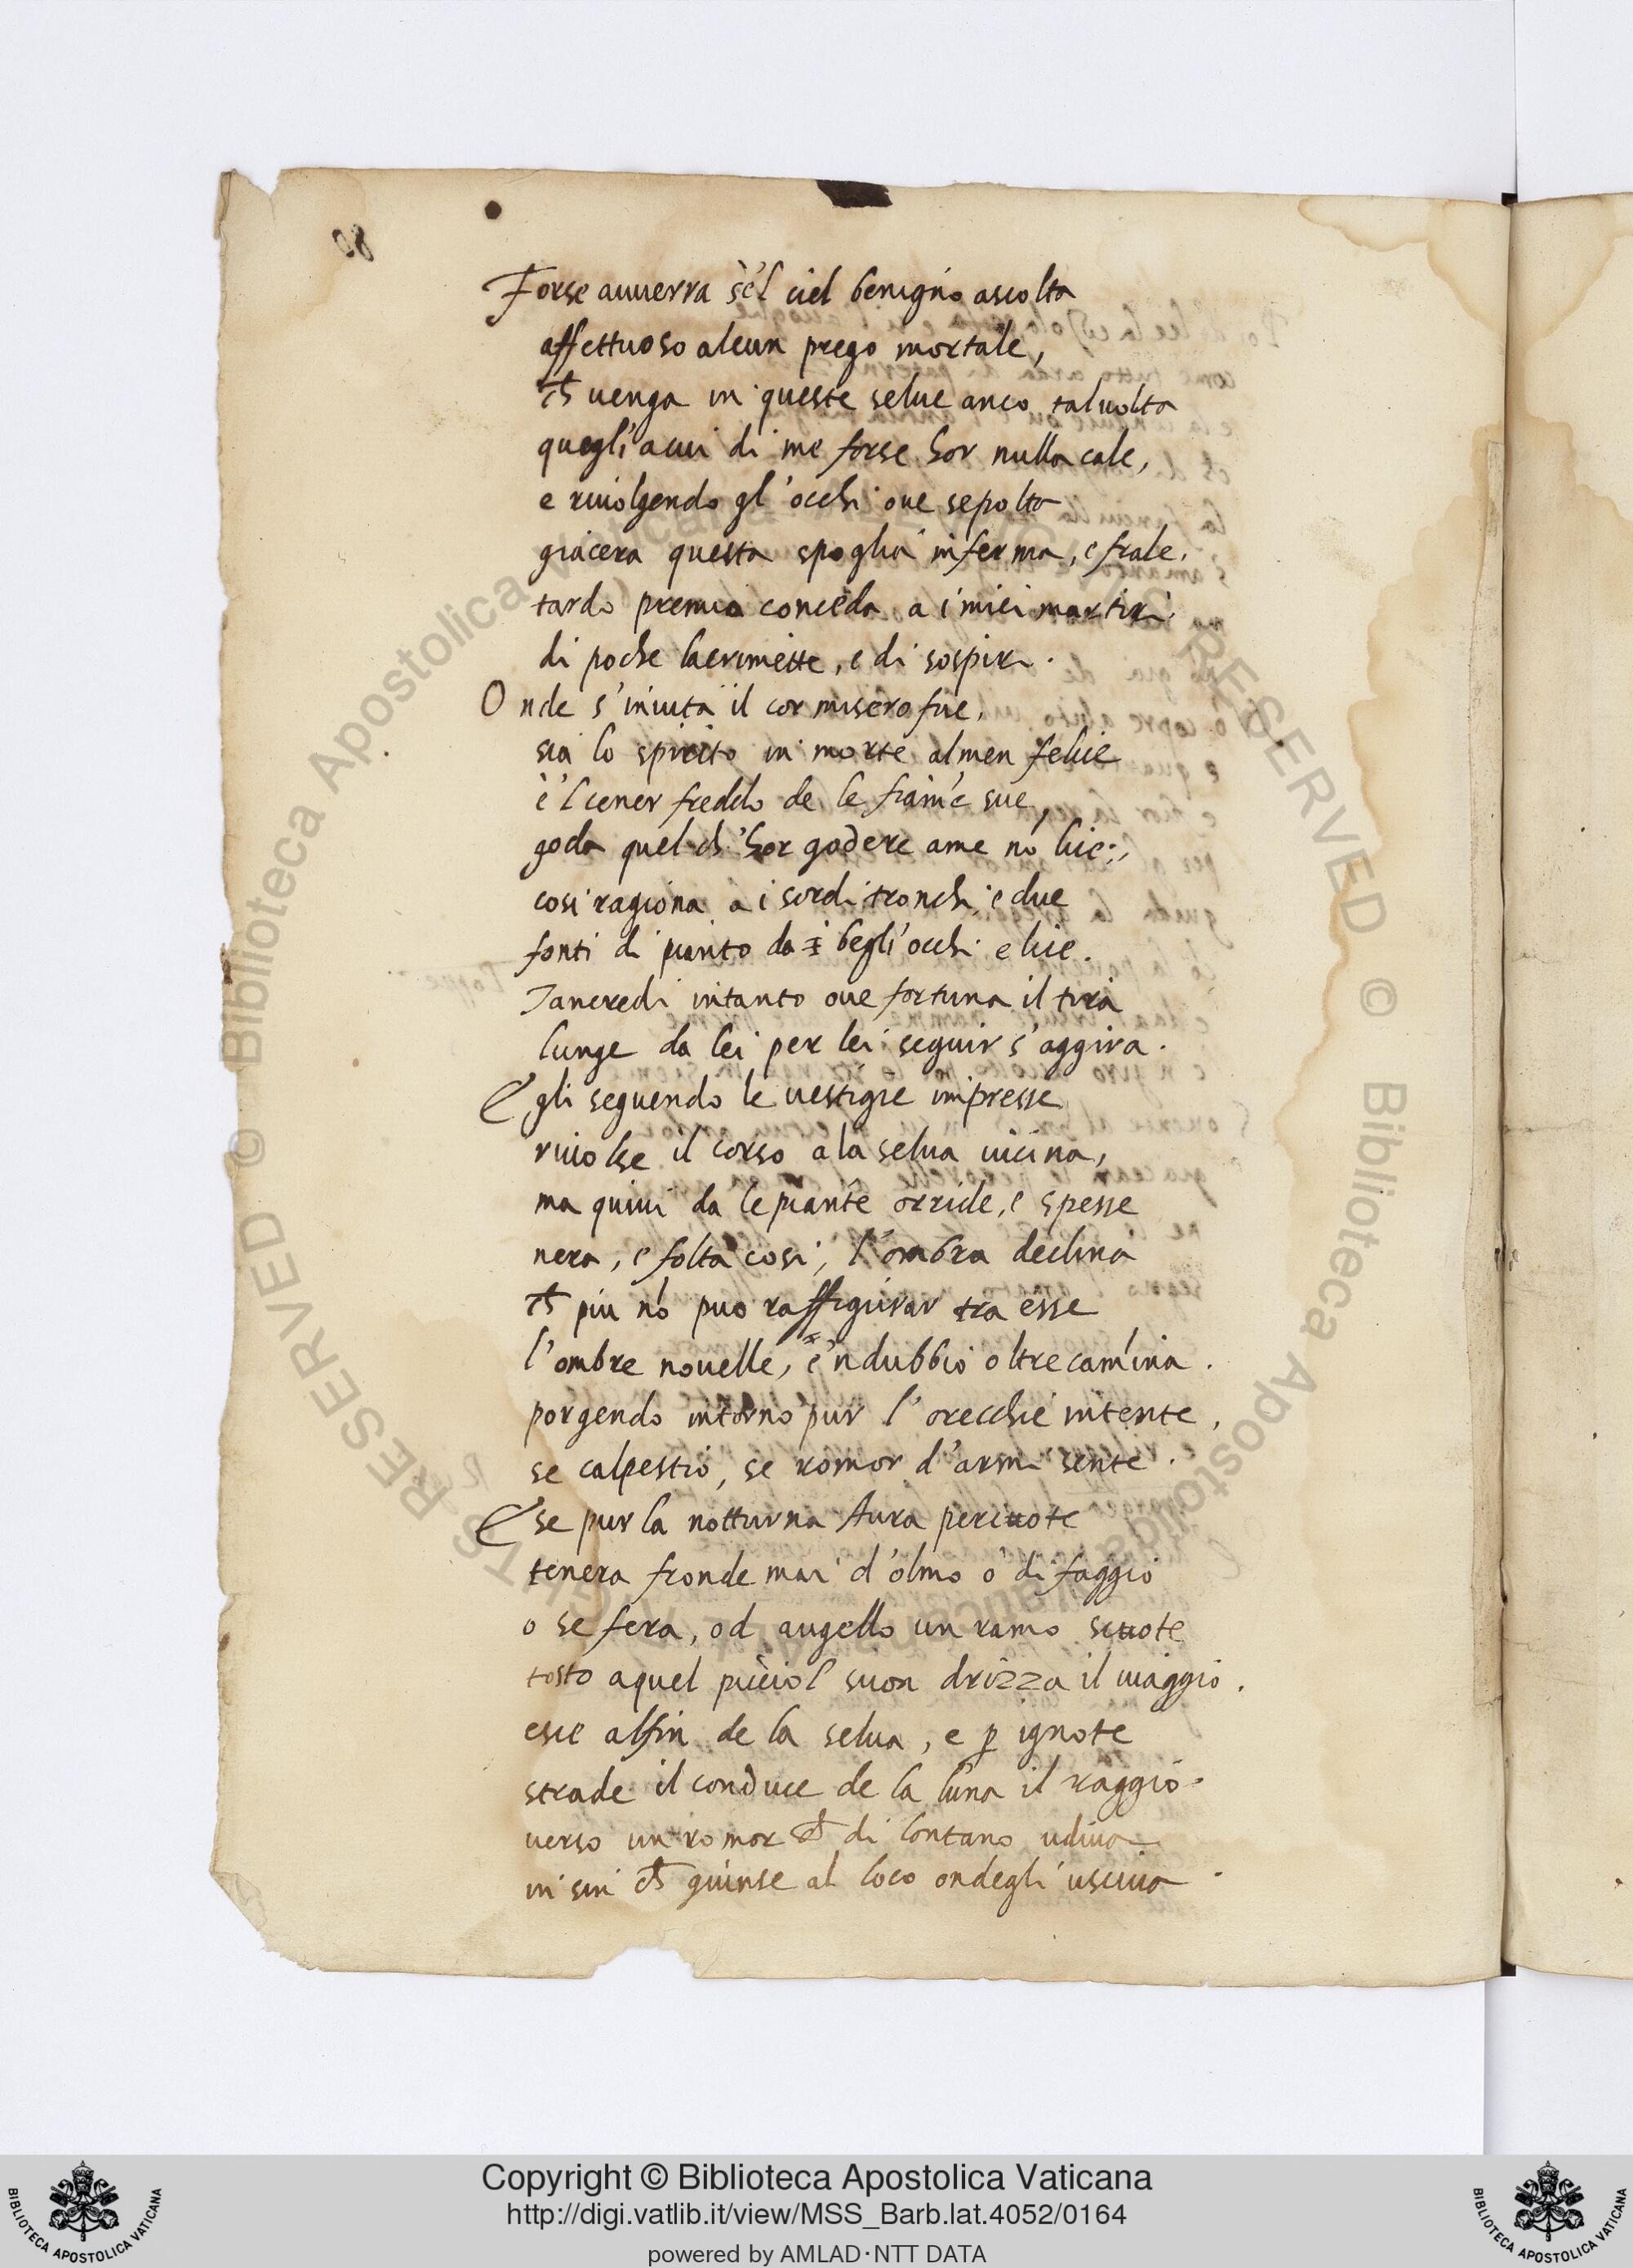 Forse auuerra s'el ciel benigno ascolta
affettuoso alcun prego mortale,
ch uenga in queste selue anco talvolta
quegli acui di me forse hor nulla cale,
e riuolgendo gl'occhi oue sepolta
giacera questa spoglia inferma, e frale.
tardo premio conceda a i miei martiri
di poche lacrimette, e di sospiri.
Onde s'in uita il cor misero fue,
sia lo spirito in morte almen felice
e 'l cener freddo de le fiam̃e sue,
goda quel ch' hor godere ame nõ lice:,
cosi ragiona a i sordi tronchi e due
fonti di pianto da i begli'occhi elice.
Tancredi intanto oue fortuna il tira
lunge da lei per lei seguir s'aggira.
Egli seguendo le uestigie impresse
riuolse il corso a la selua uicina,
ma quiui da le piante orride, e spesse
nera, e folta cosi, l'ombra declina
ch piu nõ puo raffigurar tra esse
l'ombre nouelle, e 'n dubbio oltre camina.
porgendo intorno pur l'orecchie intente,
se calpestio, se romor d'armi sente.
E se pur la notturna Aura percuote
tenera fronde mai d'olmo o di faggio
o se fera, od augello un ramo scuote
tosto aquel picciol suon drizza il uiaggio.
esce alfin de la selua, e ꝑ ignote
strade il conduce de la luna il raggio.
uerso un romor ch di lontano udiua
in sin ch giunse al loco ondegli usciua.
Copyright © Biblioteca Apostolica Vaticana
http://digi.vatlib.it/view/MSS_Barb.lat.4052/0164
powered by AMLAD·NTT DATA
BIBLIOTECA APOSTOLICA VATICANA
BIBLIOTECA APOSTOLICA VATICANA